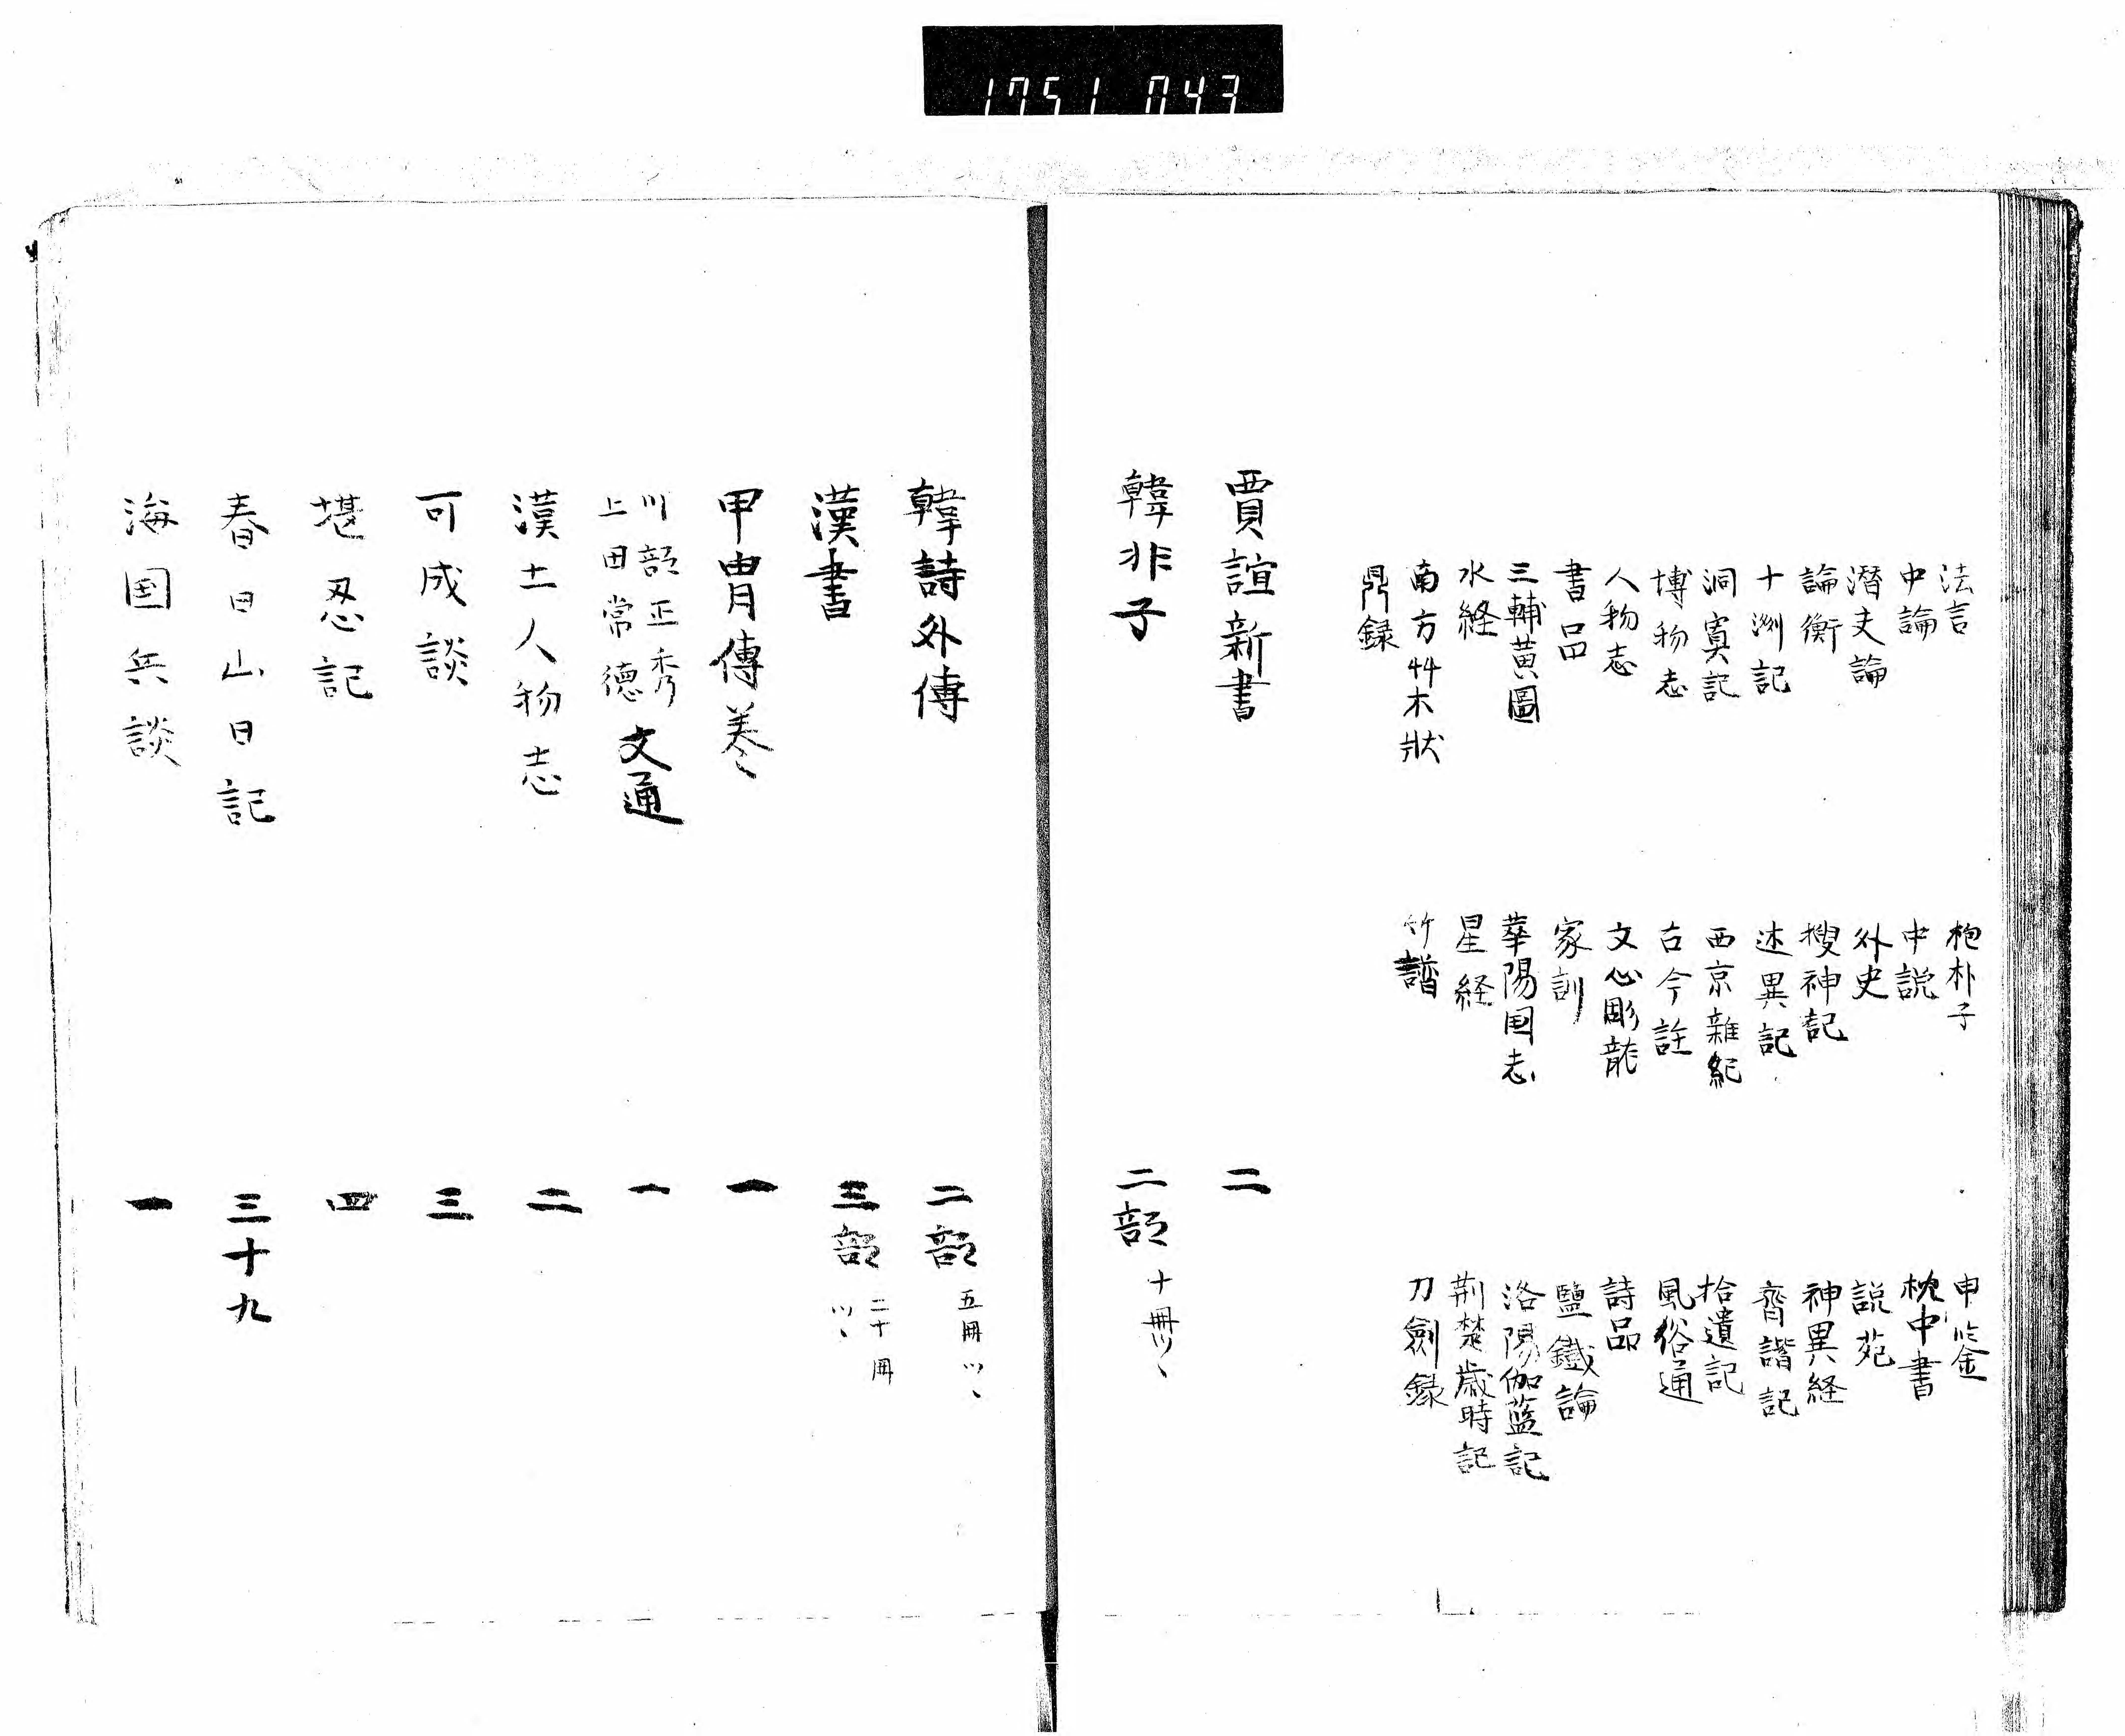 1751 043
法言 枹朴子 申鋻
中論 中説 枕中書
潜夫論 外史 説苑
論衡 搜神記 神異経
十洲記 述異記 齊諧記
洞冥記 西京雜紀 拾遺記
博物志 古今註 風俗通
人物志 文心彫龍 詩品
書品 家訓 鹽鐵論
三輔黄圖 華陽国志 洛陽伽藍記
水経 星経 荆楚歳時記
南方艸木狀 竹譜 刀劍録
鼎録
賈誼新書 二
韓非子 二部 十冊ツヽ
韓詩外傳 二部 五冊ツヽ
漢書 三部 二十冊ツヽ
甲冑傳巻 一
川部正秀
上田常德 文通 一
漢土人物志 二
可成談 三
堪忍記 四
春日山日記 三十九
海国兵談 一